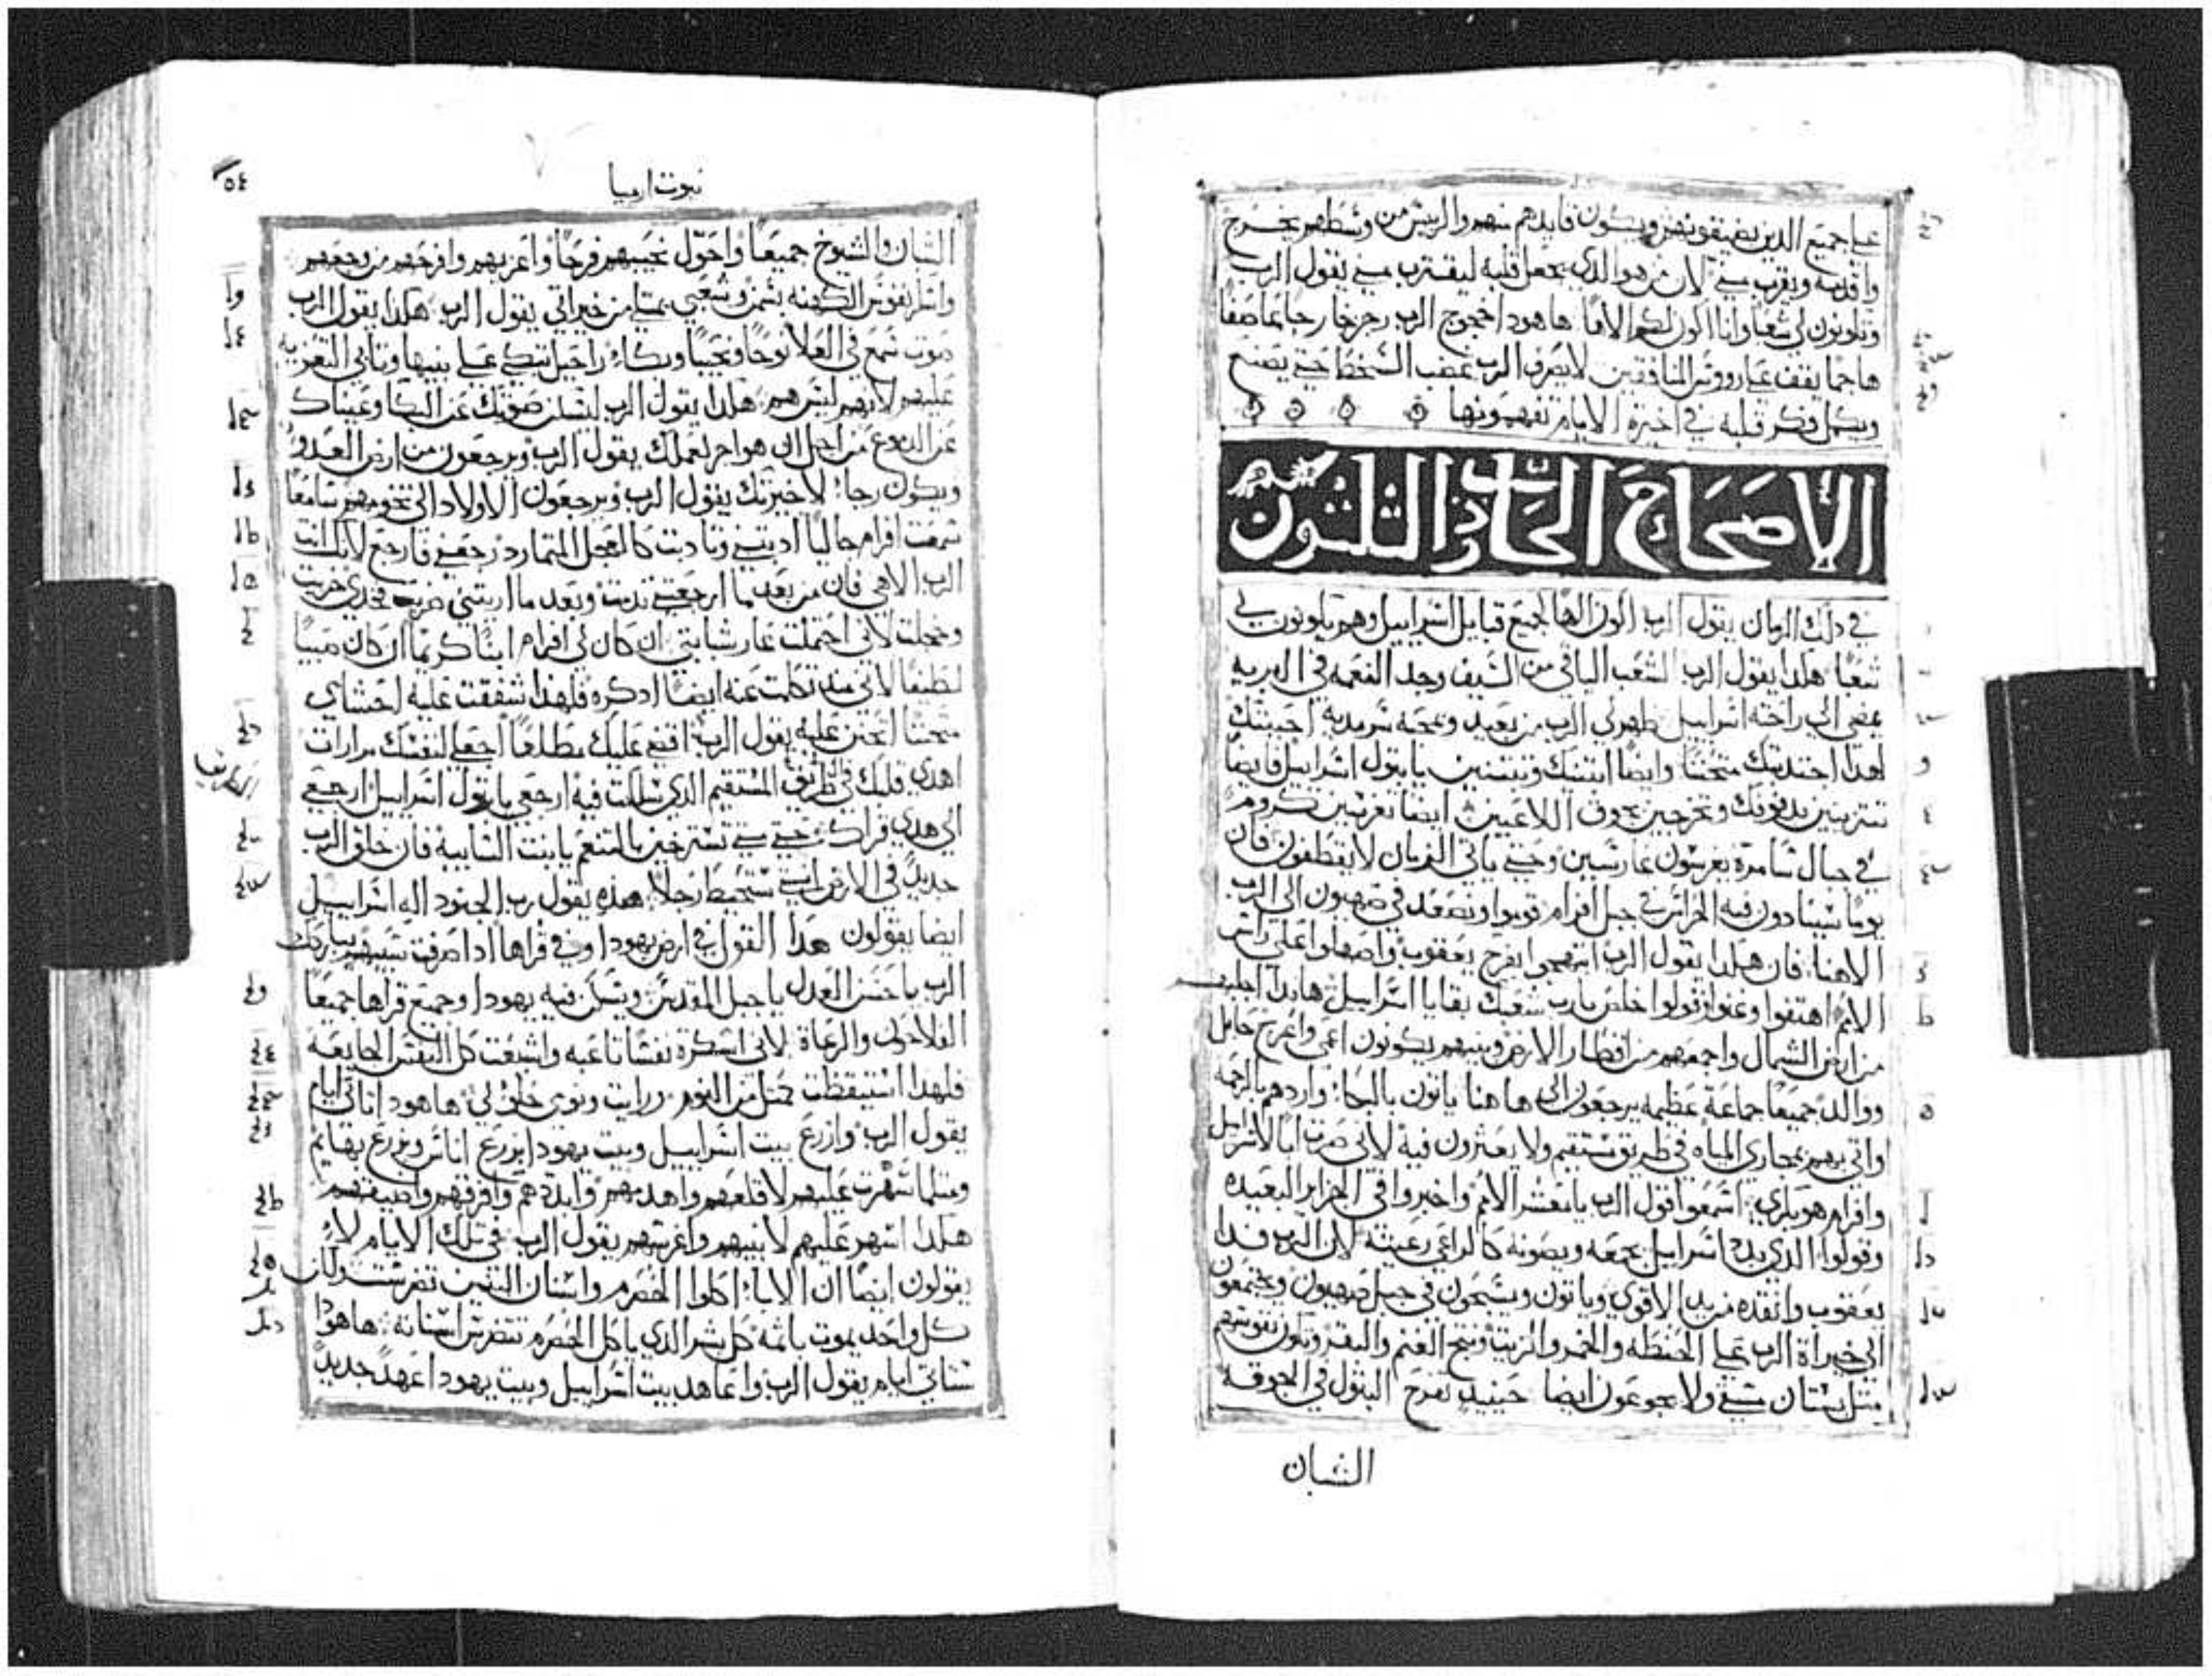 علي جميع الدين يضيقونهم ويكون قايدهم منهم والرييس من وسطهم يخرج
واقدمه ويقرب مني لان من هو الذي يجعل قلبه ليقترب مني يقول الرب
وتكونون لي شعبا وانا اكون لكم الاها ها هودا خروج الرب رجزخارجا عاصفا
هاجما يقف علي رووس المنافقين لايصرف الرب غضب السخط حتي يصنع
ويكمل فكر قلبه في اخيرة الايام تفهمونها
الاصحاح الحادي والثلثون
في دلك الزمان يقول الرب اكون الها لجميع قبايل اسراييل وهم يكونون لي
شعبا هكدا يقول الرب الشعب الباقي من السيف وجد النعمه في البريه
يمضي الي راحته اسراييل ظهر لي الرب من بعيد ومحبه سرمدية احببتك
لهدا اجتدبتك متحننا وايضا ابنيك وتبتنين يا بتول اسراييل فايضا
تتزينين بدفوفك وتخرجين بجوق اللاعبين ايضا تغرسين كروم
في جبال سامرة يغرسون غارسين وحتي ياتي الزمان لا يقطفون فان
يوما ينادون فيه الحراس في جبل افرام قوموا ونصعد في صهيون الي الرب
الاهنا فان هكدا يقول الرب ابتهجوا بفرح يعقوب واصهلوا علي راس
الامم اهتفوا وغنوا وقولوا خلص يارب شعبك بقايا اسراييل هاندا اجلبهم
من ارض الشمال واجمعهم من اقطار الارض وبينهم يكونون اعمي واعرج حامل
ووالد جميعا جماعة عظيمه يرجعون الي ها هنا ياتون بالبكا واردهم بالرحمه
واتي بهم بمجاري المياه في طريق مستقيم ولا يعثرون فيه لاني صرت ابا لاسراييل
وافرام هو بكري اسمعوا قول الرب يا معشر الامم واخبروا في الجزاير البعيده
وقولوا الذي بدد اسراييل يجمعه ويصونه كالراعي رعيته لان الرب فدا
يعقوب وانقده من يد الاقوي وياتون ويسبحون في جبل صهيون ويجتمعون
الي خيراة الرب علي الحنطه والخمر والزيت ونتج الغنم والبقر وتكون نفوسهم
مثل بستان سقي ولا يجوعون ايضا حينيد تفرح البتول في الجوقه
الشبان
نبوت ارميا
٥٤
الشبان والشيوخ جميعا واحول نحيبهم فرحا واعزيهم وافرحهم من وجعهم
واملا نفوس الكهنه بسمن وشعبي يمتلي من خيراتي يقول الرب هكدا يقول الرب
صوت سمع في العلا نوحا ونحيبا وبكاء راحيل تبكي علي بنيها وتابي التعزيه
عليهم لانهم ليس هم هكدا يقول الرب ليسكن صوتك عن البكا وعيناك
عن الدموع من اجل ان هو اجر لعملك يقول الرب ويرجعون من ارض العدو
ويكون رجاء لاخيرتك يقول الرب ويرجعون الاولاد الي تخومهم سامعا
سمعت افرام جاليا ادبتني وتادبت كالعجل المتمارد رجعني فارجع لانك انت
الرب الاهي فان من بعد ما ارجعتني ندمت وبعد ما اريتني ضربت فخدي خزيت
وخجلت لاني احتملت عار شبابي ان كان لي افرام ابنا كريما ان كان صبيا
لطيفا لاني منذ تكلمت عنه ايضا ادكره فلهدا شفقت عليه احشاي
متحننا اتحنن عليه يقول الرب اقمي عليك مطلعا اجعلي لنفسك مرارات
اهدي قلبك في الطريق المستقيم الذي سلكت فيه ارجعي يا بتول اسراييل ارجعي
الي هدي قراك حتي متي تسترخين بالتنعم يا بنت السايبه فان خلق الرب
جديد في الارض انثي ستحيط رجلا هده يقول رب الجنود اله اسراييل
ايضا يقولون هدا القول في ارض يهودا وفي قراها ادا صرفت سبيهم يباركك
الرب يا حسن العدل يا جبل المقدس ويسكن فيه يهودا وجميع قراها جميعا
الفلاحون والرعاة لاني اسكرة نفسا تاعبه واشبعت كل النفس الجايعه
فلهدا استيقظت مثل من النوم ورايت ونومي حلو لي ها هودا تاتي ايام
يقول الرب وازرع بيت اسراييل وبيت يهودا بزرع اناس وبزرع بهايم
ومثلما سهرت عليهم لاقلعهم واهدمهم وابددهم وافرقهم واضيقهم
هكدا اسهر عليهم لابنيهم واغرسهم يقول الرب في تلك الايام لا
يقولون ايضا ان الاباء اكلوا الحصرم واسنان البنين تضرست لكن
كل واحد يموت باثمه كل بشر الدي ياكل الحصرم تتضرس اسنانه ها هودا
ستاتي ايام يقول الرب واعاهد بيت اسراييل وبيت يهودا عهدا جديدا